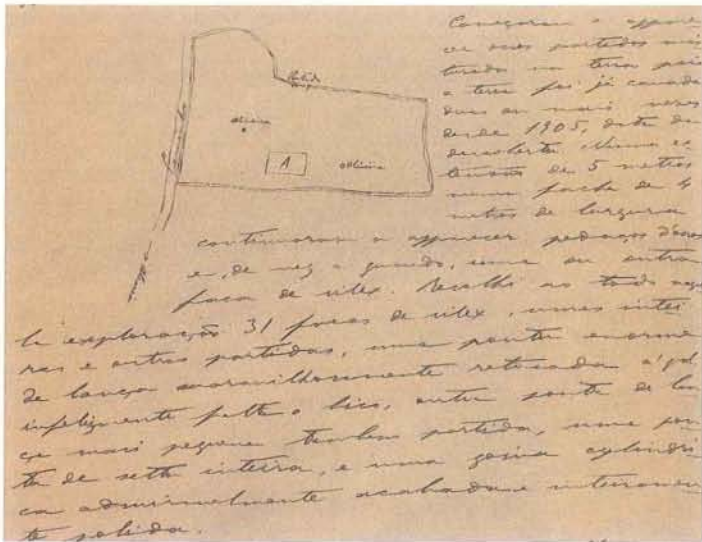 Começaram a appare
cer ossos partidos mis
turados na terra pois
a terra foi já cavada
duas ou mais vezes
desde 1905, data da
descoberta. Numa ex
tensão de 5 metros
numa facha de 4
metros de largura
oliveira
A
oliveira
continuaram a apparecer pedaços d'ossos
e, de vez a quando, uma ou outra
faca de silex. Recolhi ao todo
la exploração 31 facas de silex, umas intei
ras e outras partidas, uma ponta enorme
de lança maravilhosamente retocada
infelizmente falta o bico, outra ponta de lan
ça mais pequena tambem partida, uma pon
ta de setta inteira, e uma goiva cylindri
ca admiravelmente acabada e inteiramen
te polida.